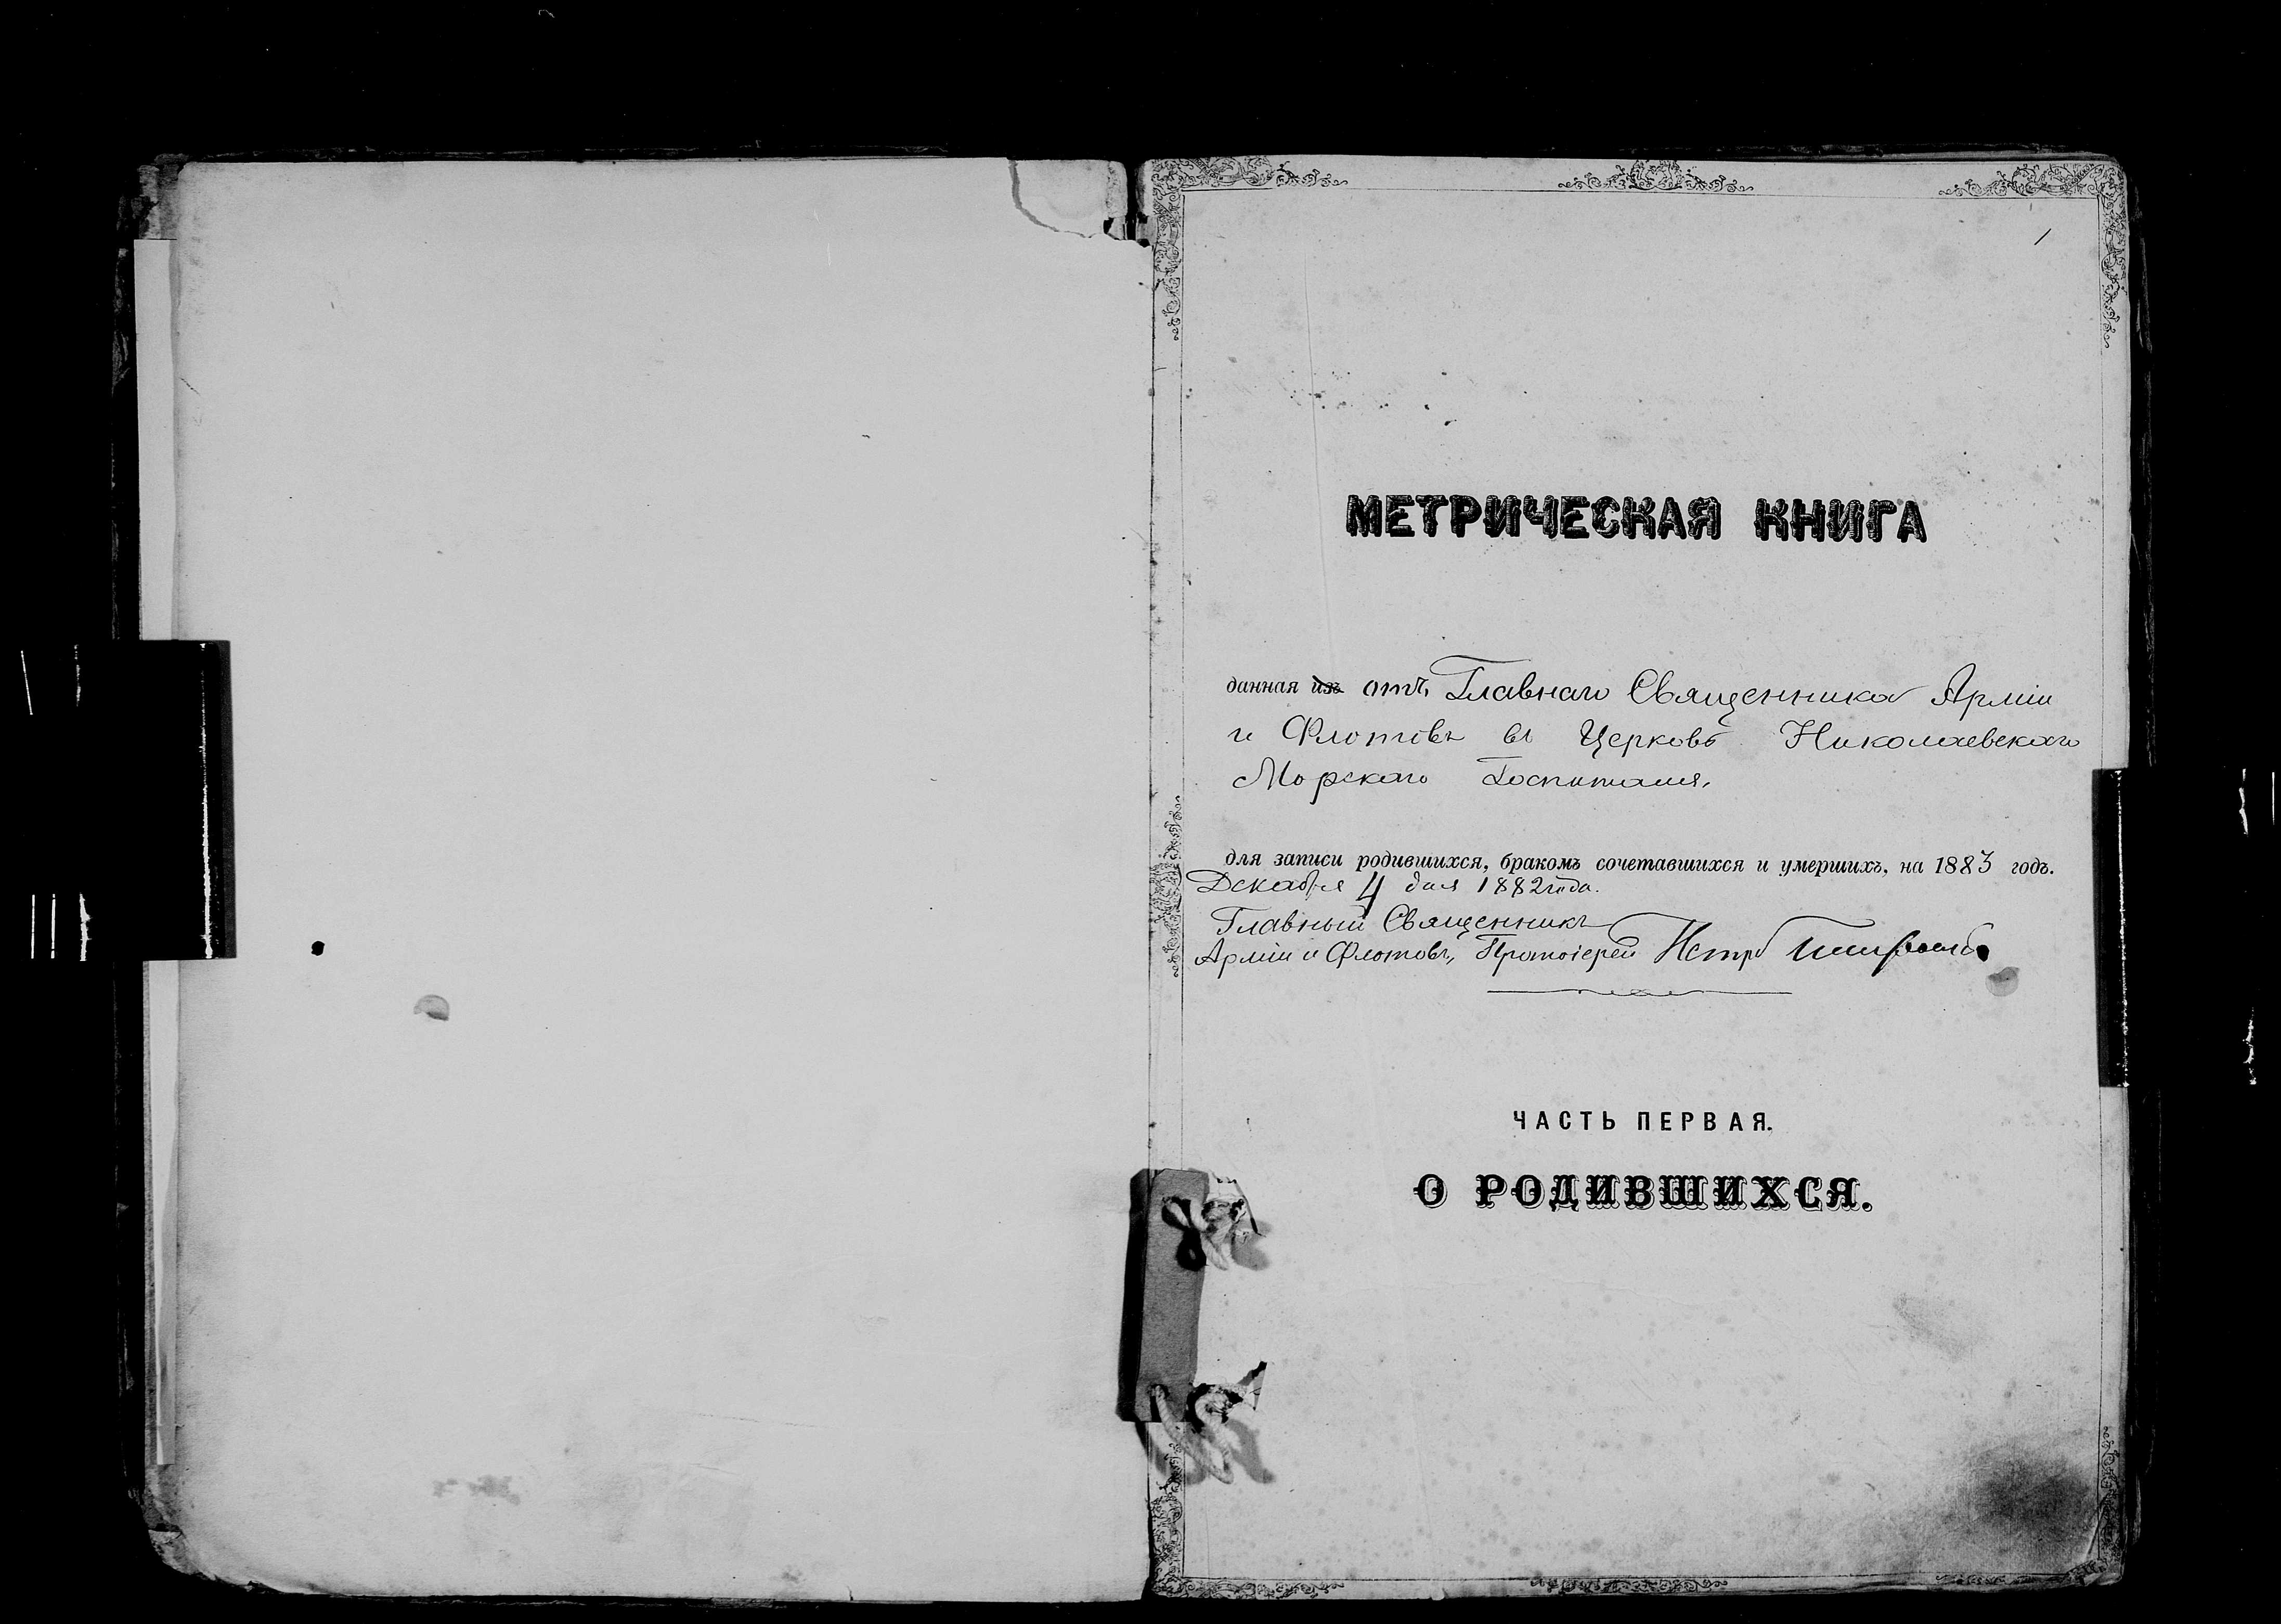 1
МЕТРИЧЕСКАЯ КНИГА
данная изъ отъ Главнаго Священника Арміи
и Флотовъ въ Церковь Николаевскаго
Морскаго Госпиталя,
для записи родившихся, бракомъ сочетавшихся и умершихъ, на 1883 годъ.
Декабря 4 дня 1882 года.
Главный Священникъ
Арміи и Флотовъ, Протоіерей Петръ
ЧАСТЬ ПЕРВАЯ.
О РОДИВШИХСЯ.